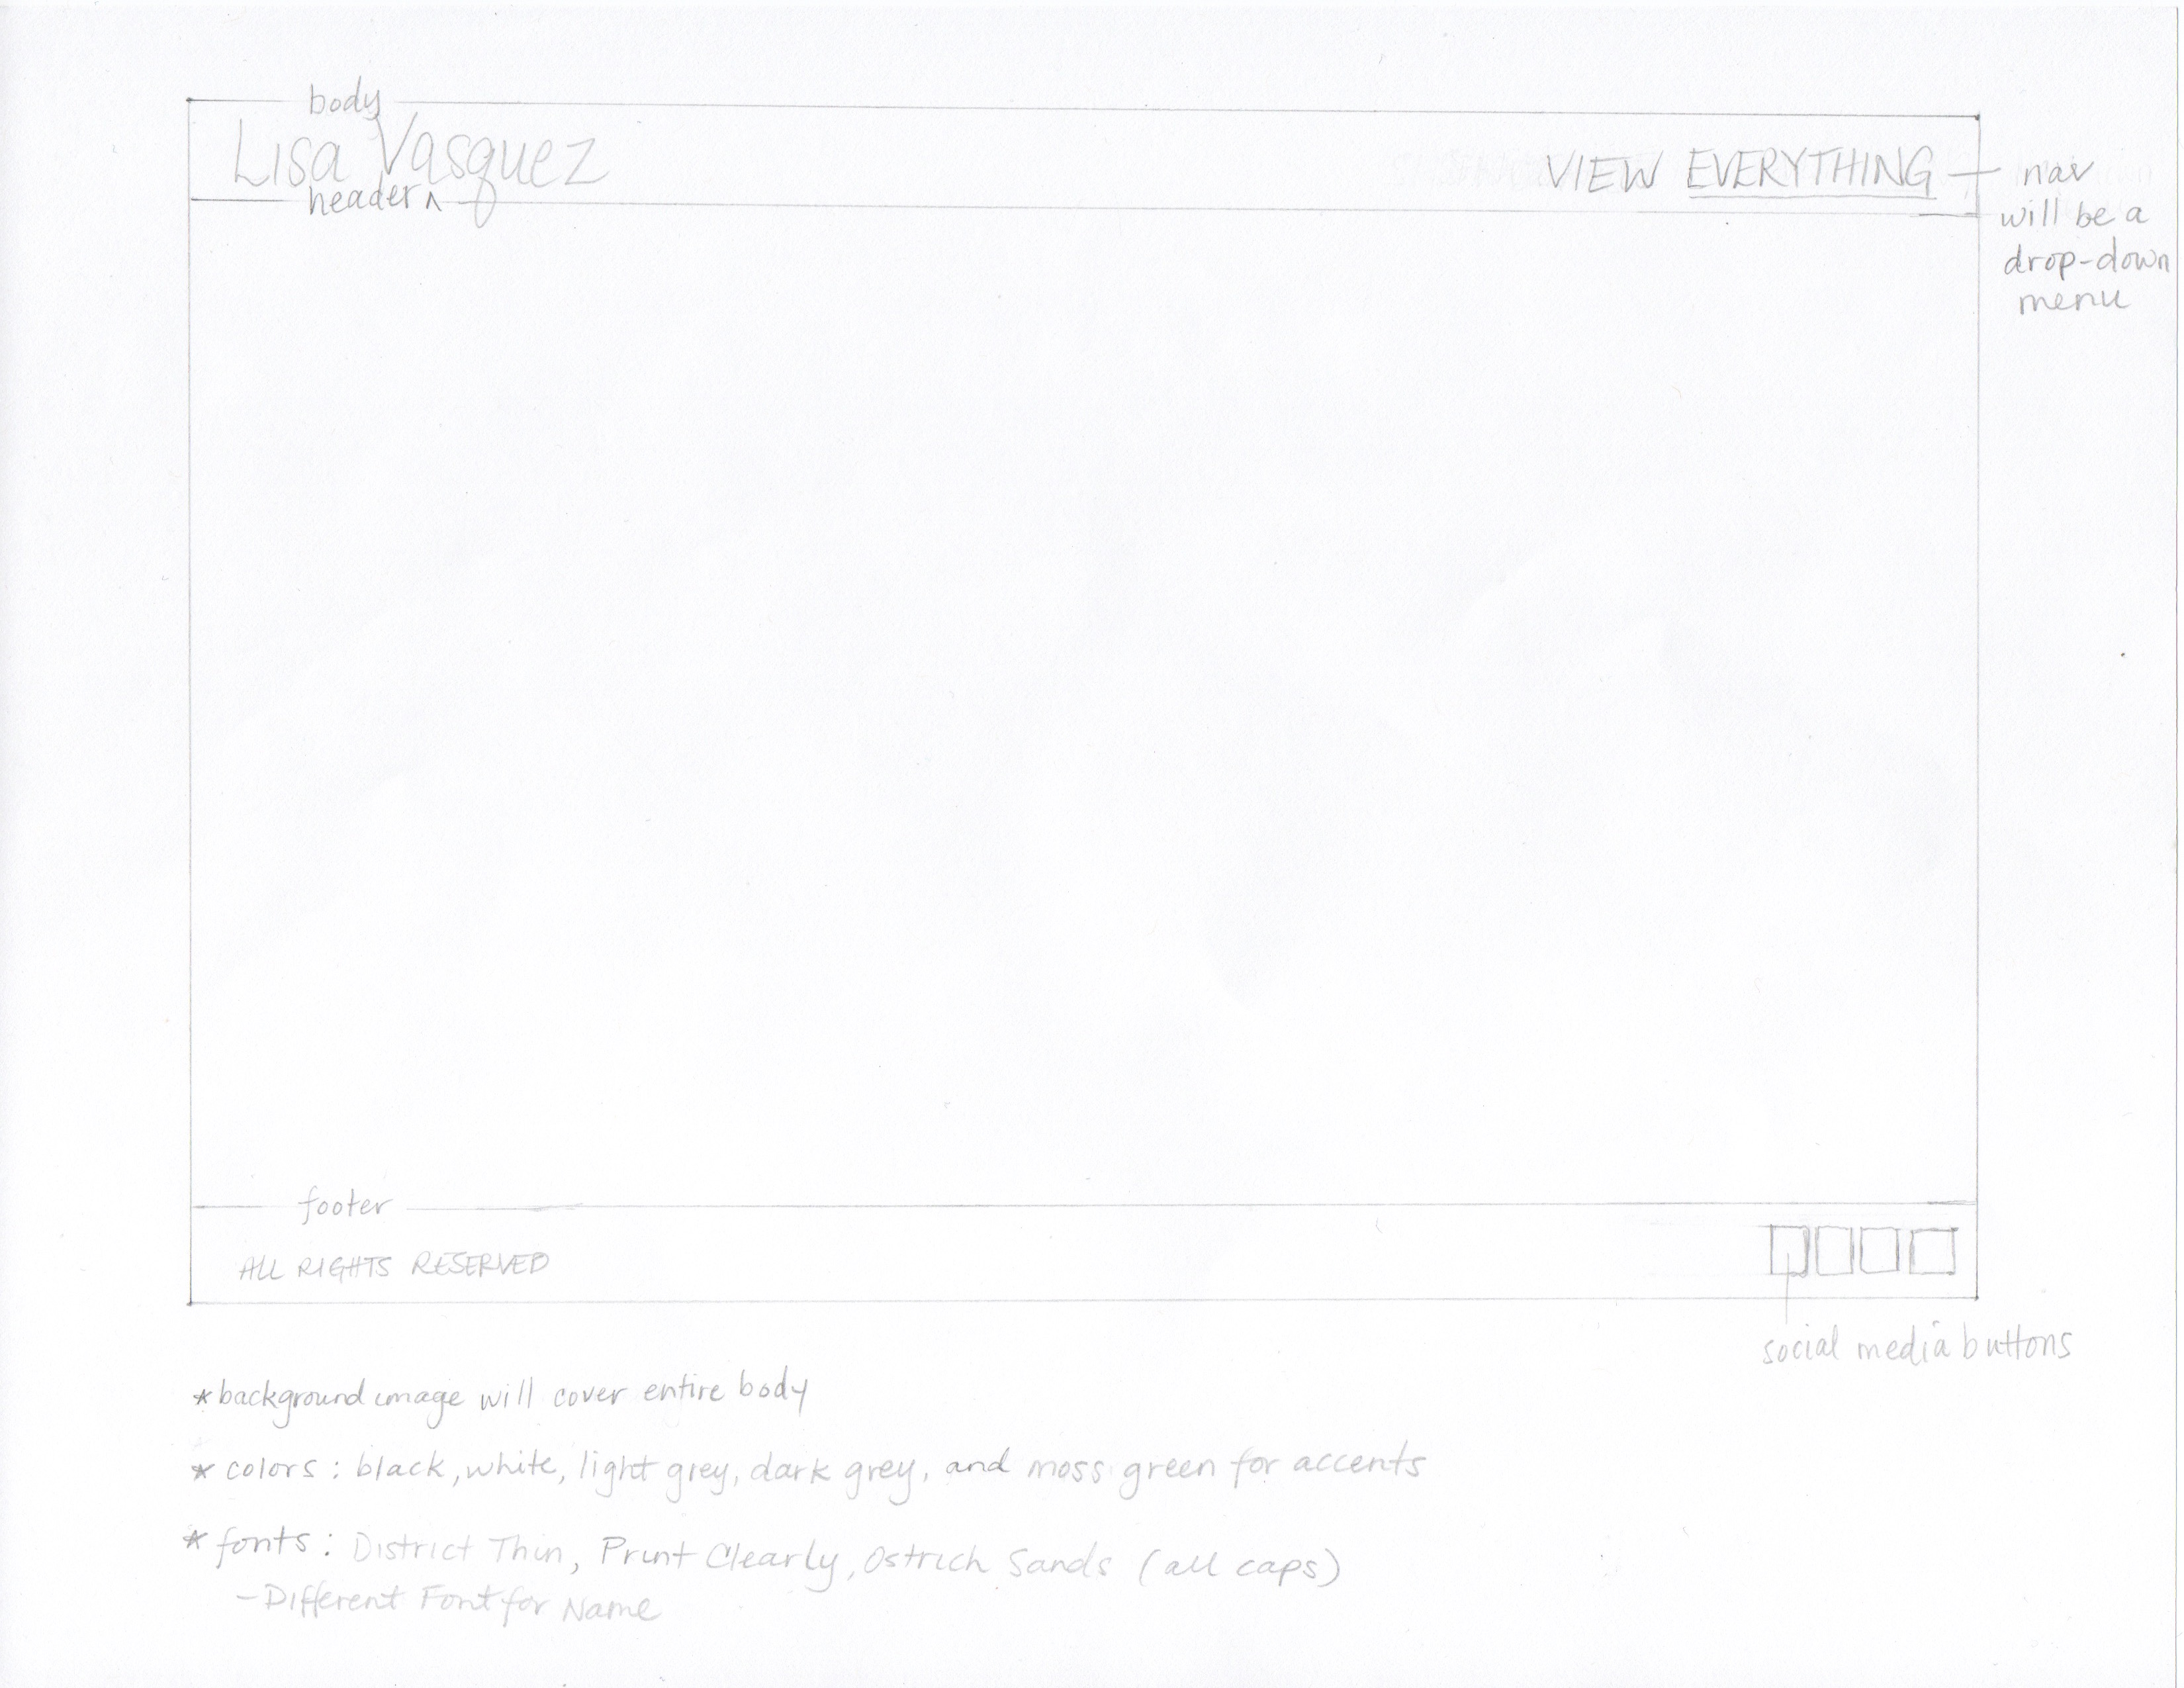 body
Lisa Vasquez
header ^
VIEW EVERYTHING
nav
will be a
drop-down
menu
footer
ALL RIGHTS RESERVED
social media buttons
*background image will cover entire body
*colors: black, white, light grey, dark grey, and moss green for accents
*fonts: District Thin, Print Clearly, Ostrich Sands (all caps)
-Different Font for Name